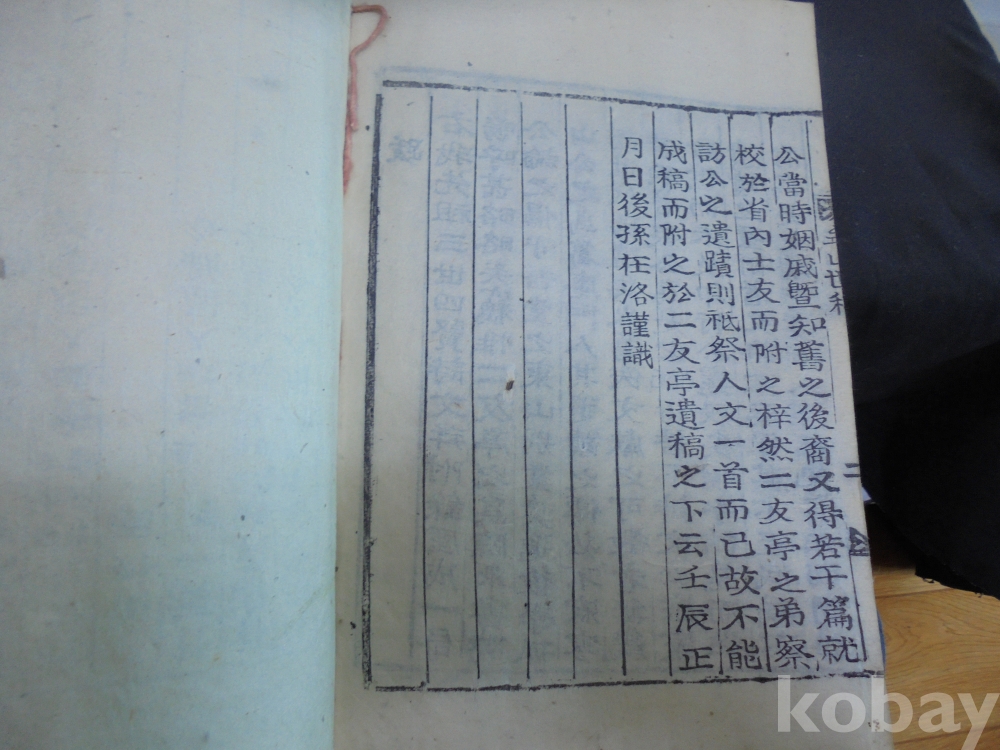 公當時姻戚曁知舊之後裔又得若干篇就
校於省內士友而附之梓然二友亭之弟察
訪公之遺蹟則祗祭人文一首而已故不能
成稿而附之於二友亭遺稿之下云壬辰正
月日後孫在洛謹識
二
kobay